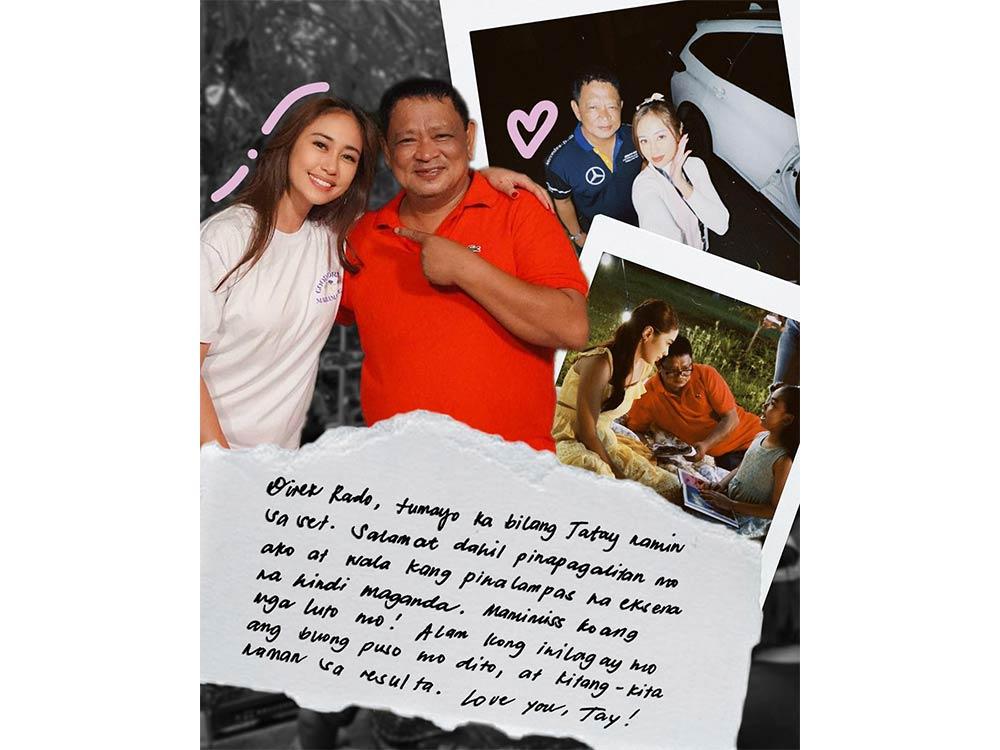 Direk Rado, tumayo ka bilang Tatay namin
sa set. Salamat dahil pinapagalitan mo
ako at wala kang pinalampas na eksena
na hindi maganda. Mamimiss ko ang
mga luto mo! Alam kong inilagay mo
ang buong puso mo dito, at kitang-kita
naman sa resulta. Love you, Tay!